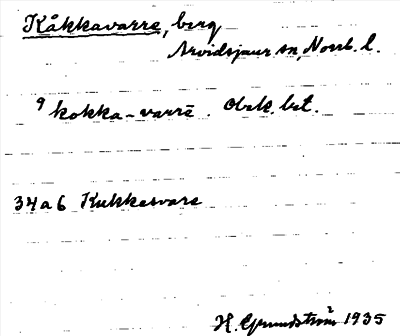 Kåkkavarre, berg
Arvidsjaur sn, Norrb. l.
9 kokka-varrē. Obek. bet.
34a6 Kukkesvare
H. Grundström 1935